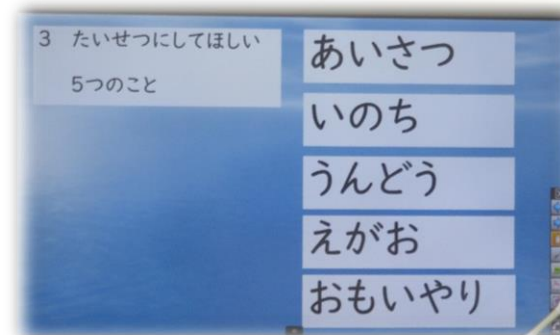 3 たいせつにしてほしい
5つのこと
あいさつ
いのち
うんどう
えがお
おもいやり